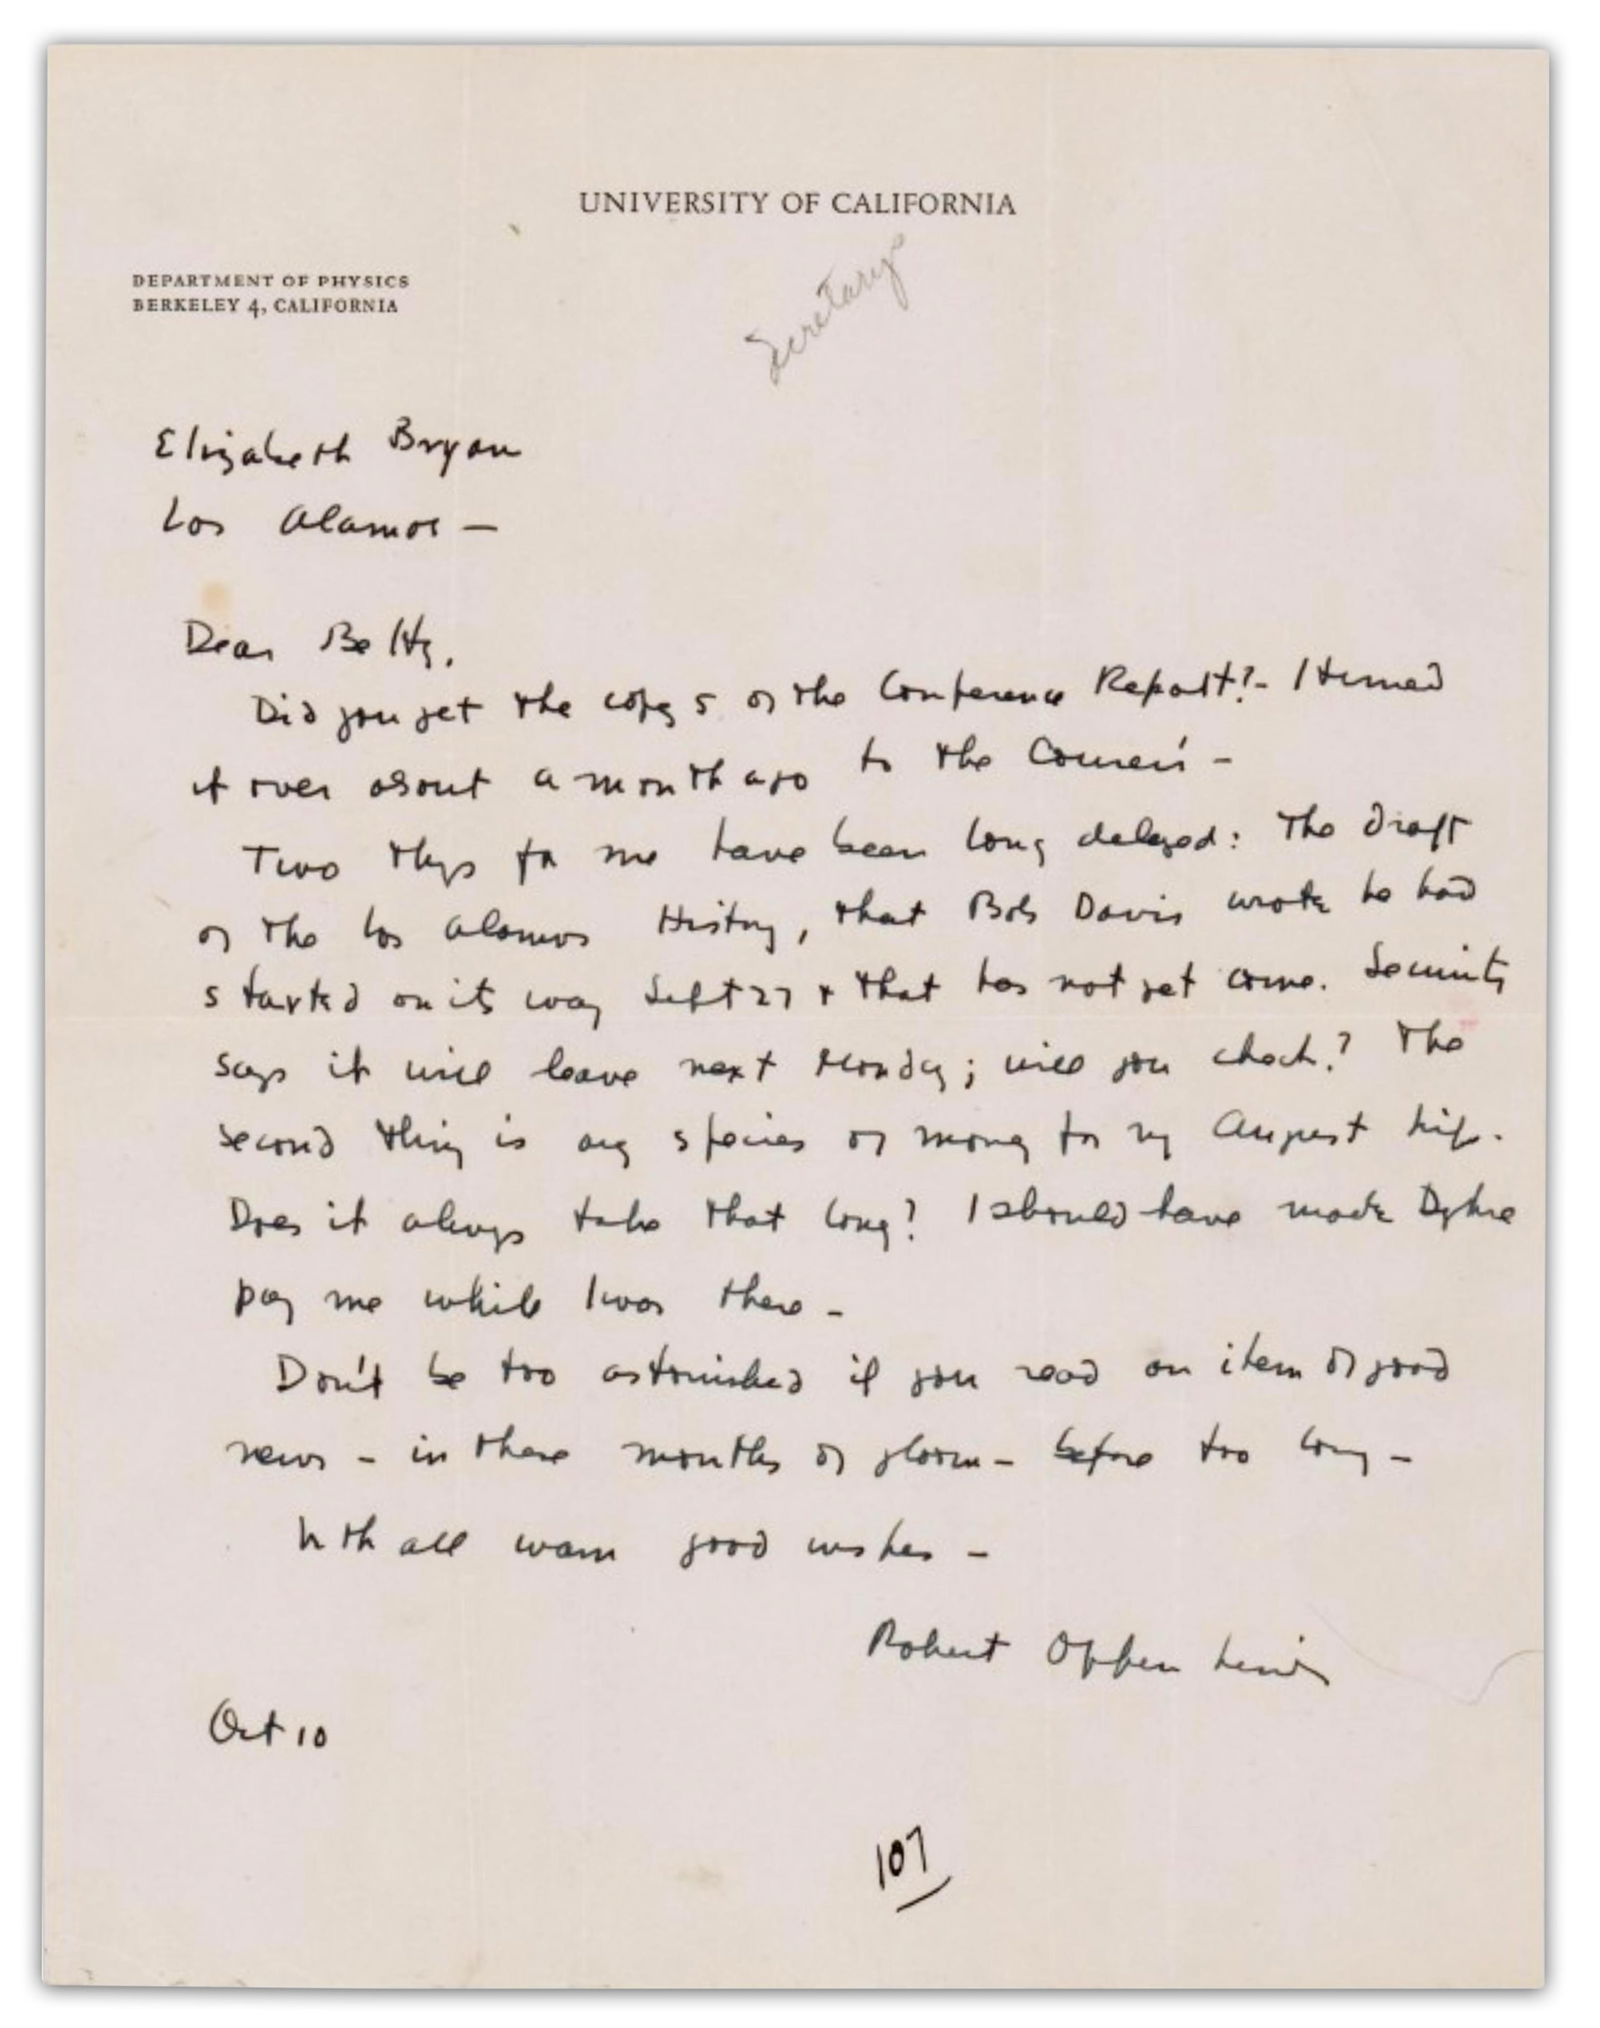 UNIVERSITY OF CALIFORNIA
Secretarys
DEPARTMENT OF PHYSICS
BERKELEY 4, CALIFORNIA
Elizabeth Bryan
Los Alamos —
Dear Betty,
Did you get the copy 5 of the Conference Report? - I turned
it over about a month ago to the Courier -
Two thgs for me have been long delayed: The draft
of the Los Alamos History, that Bob Davis wrote he had
started on its way Sept 27 & that has not yet come. Security
says it will leave next Monday; will you check? The
second thing is any species of money for my August trip.
Does it always take that long? I should have made Dyhre
pay me while I was there -
Don't be too astonished if you read an item of good
news - in these months of gloom - before too long -
With all warm good wishes -
Robert Oppenheimer
Oct 10
107